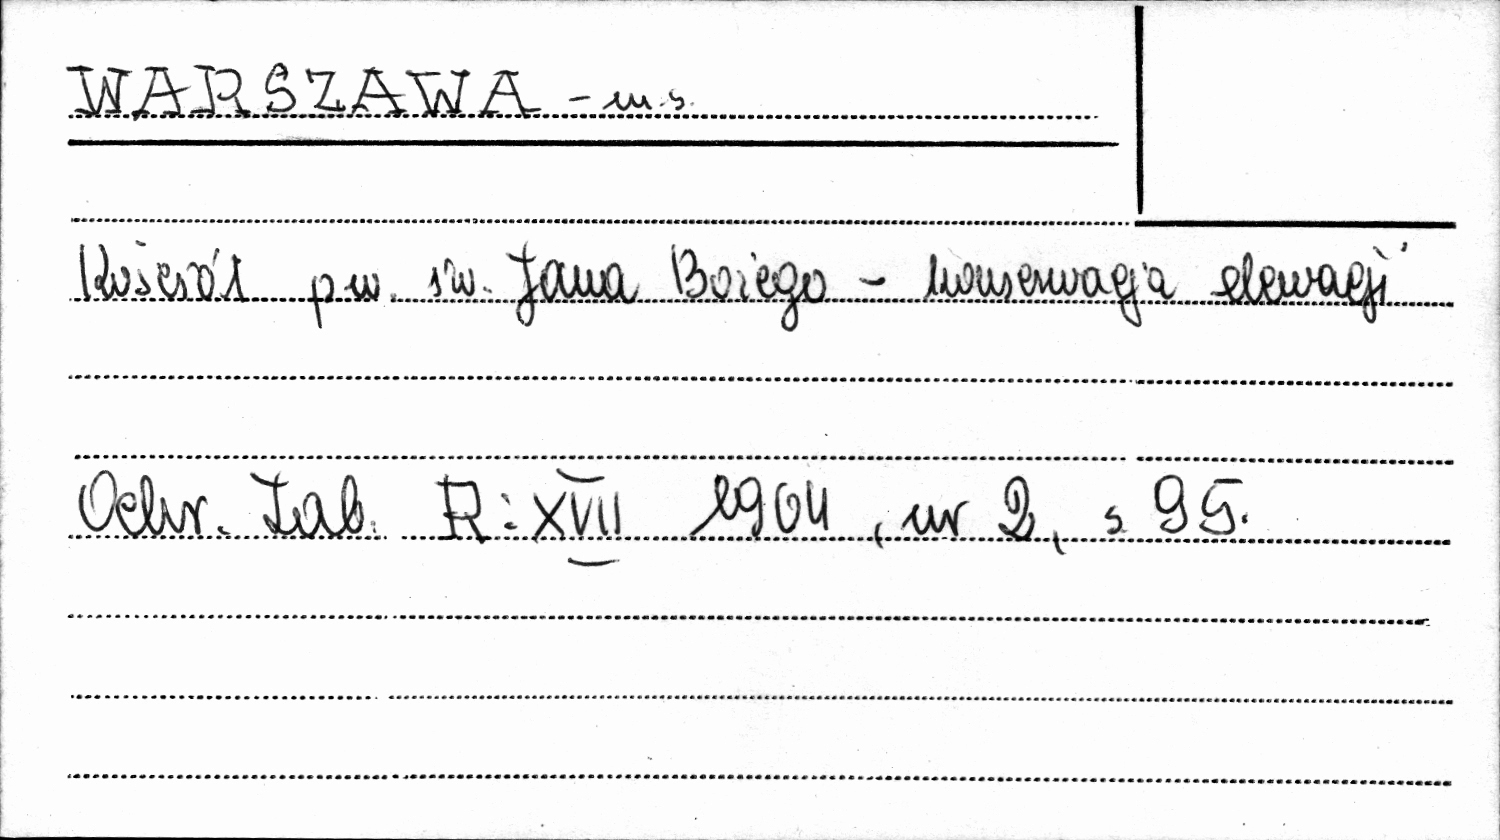 WARSZAWA - m.s.
Kościół p.w. św. Jana Bożego - konserwacja elewacji
Ochr. Zab. R: XVII 1964, nr 2, s 95.